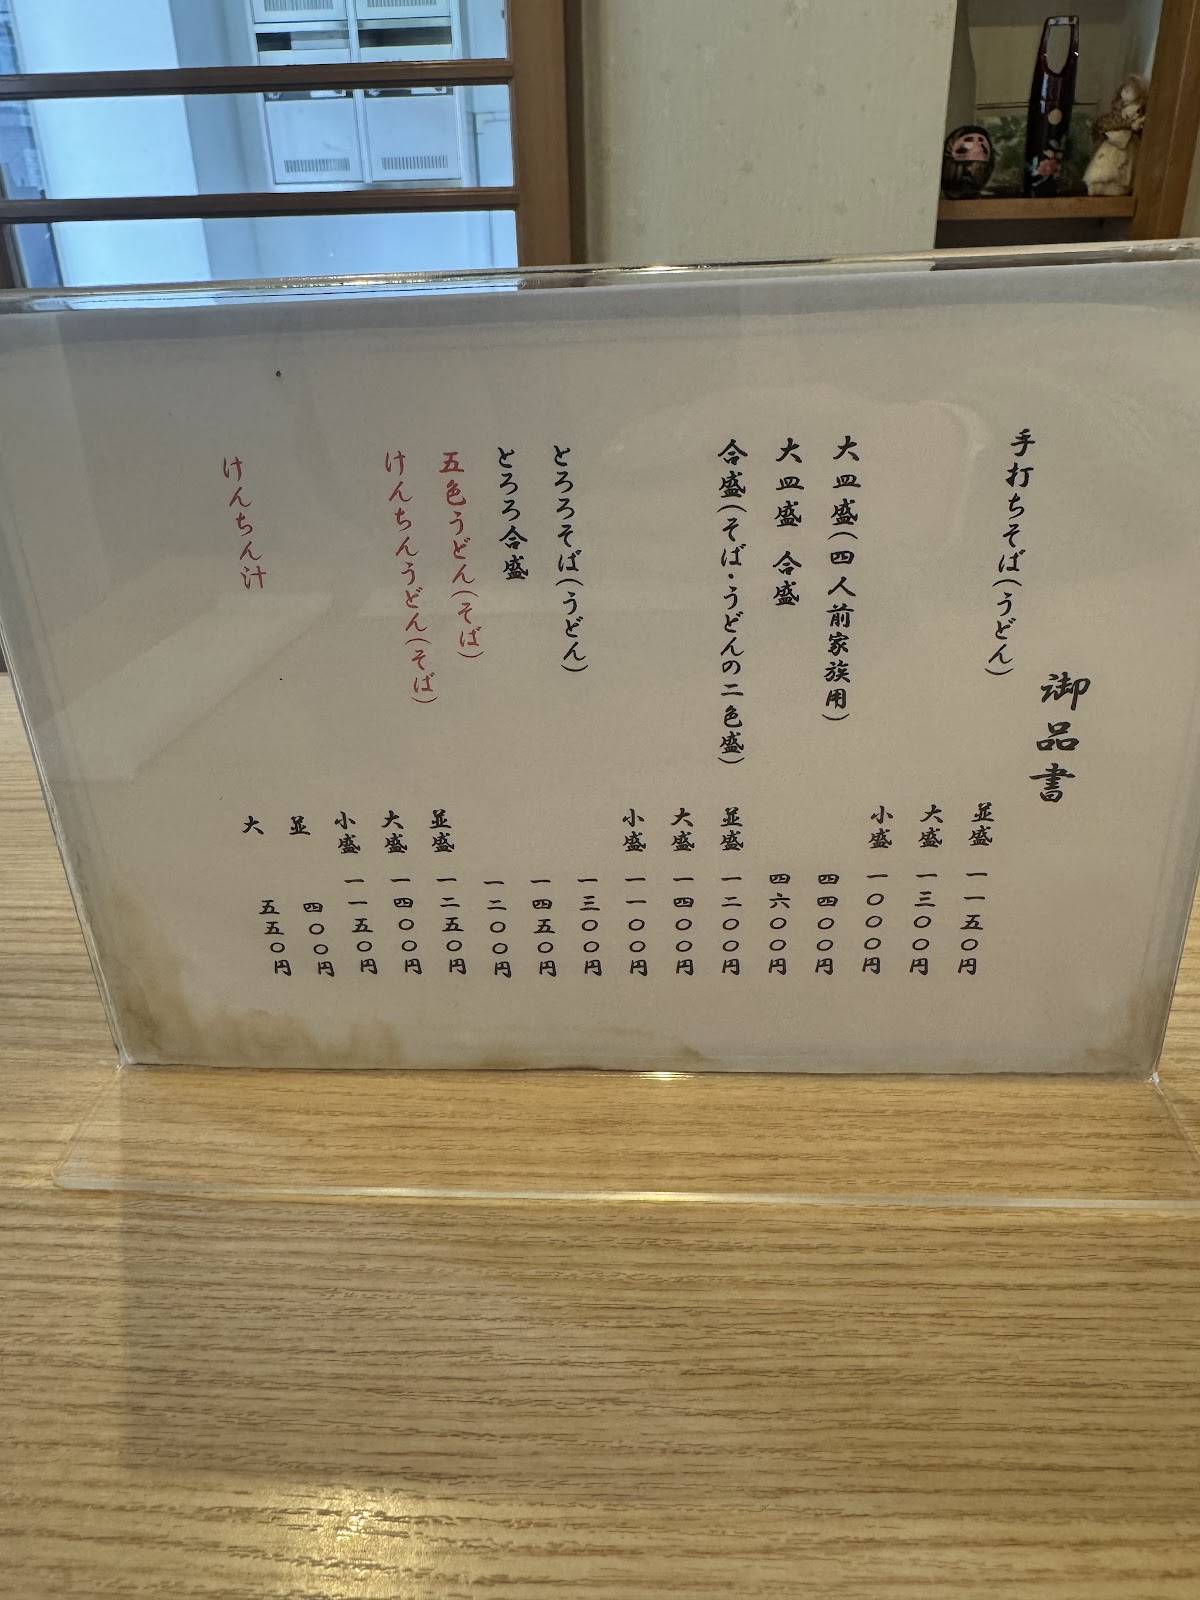 御品書
手打ちそば(うどん) 並盛 一一五〇円
大盛 一三〇〇円
小盛 一〇〇〇円
大皿盛(四人前家族用) 四四〇〇円
大皿盛 合盛 四六〇〇円
合盛(そば・うどんの二色盛) 並盛 一二〇〇円
大盛 一四〇〇円
小盛 一一〇〇円
とろろそば(うどん) 一三〇〇円
とろろ合盛 一四五〇円
五色うどん(そば) 一二〇〇円
けんちんうどん(そば) 並盛 一二五〇円
大盛 一四〇〇円
小盛 一一五〇円
けんちん汁 並 四〇〇円
大 五五〇円